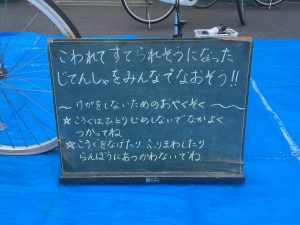 こわれてすてられそうになった
じてんしゃをみんなでなおそう!!
〜けがをしないためのおやくそく〜
☆こうぐはひとりじめしないでなかよく
つかってね
☆こうぐをなげたり ふりまわしたり
らんぼうにあつかわないでね